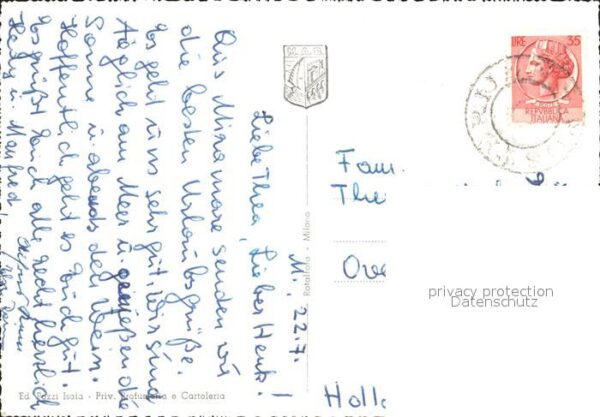 M., 22.7.
Liebe Thea, Lieber Henk!
Aus Miramare senden wir
die besten Urlaubsgrüße.
Es geht uns sehr gut. Wir sind
täglich am Meer u. genießen die
Sonne u. abends den Wein.
Hoffentlich geht es Euch gut.
Es grüßt Euch alle recht herzlich
Manfred
Fam.
The
Ove
Holla
LIRE 35
REPVBBLICA
ITALIANA
Rotalfoto - Milano
Ed. Pozzi Isola - Priv. Profumeria e Cartoleria
privacy protection
Datenschutz